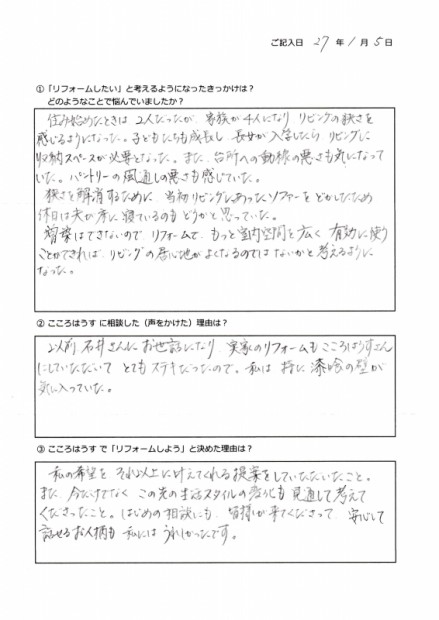 ご記入日 27 年 1 月 5 日
① 「リフォームしたい」と考えるようになったきっかけは？
どのようなことで悩んでいましたか？
住み始めたときは 2人だったが、家族が4人になり リビングの狭さを
感じるようになった。子どもたちも成長し 長女が入学したら リビングに
収納スペースが必要となった。また、台所への動線の悪さも気になって
いた。パントリーの風通しの悪さも感じていた。
狭さを解消するために、当初リビングにあったソファーをどかしたため
休日は夫が床に寝ているのもどうかと思っていた。
増築はできないので リフォームで、もっと室内空間を広く 有効に使う
ことができれば、リビングの居心地がよくなるのでは ないかと考えるように
なった。
② こころはうす に相談した（声をかけた）理由は？
以前 石井さんに お世話になり、実家のリフォームも こころはうすさん
にしていただいて とてもステキだったので。私は 特に 漆喰の壁が
気に入っていた。
③ こころはうす で「リフォームしよう」と決めた理由は？
私の希望を それ以上に叶えてくれる提案をしていただいたこと。
また、今だけでなく この先の生活スタイルの変化も 見通して考えて
くださったこと。はじめの相談にも、皆様が来てくださって、安心して
話せるお人柄も 私には うれしかったです。